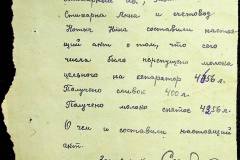 Стихарна Анна и счетовод
Котык Нина составили настоя-
щий акт в том, что сего
числа было пропущено молока
цельного на сепаратор 4856 л.
Получено сливок 400 л.
Получено молоко снятое 4256 л.
О чем и составили настоящий
акт.